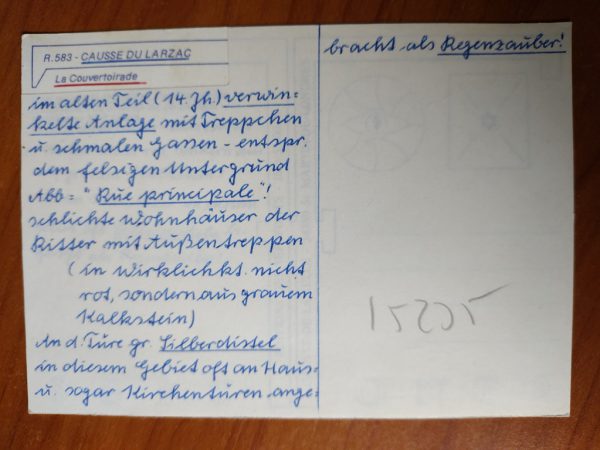 R.583 - CAUSSE DU LARZAC
La Couvertoirade
im alten Teil (14. Jh.) verwin-
kelte Anlage mit Treppchen
u. schmalen Gassen - entspr.
dem felsigen Untergrund
Abb = "Rue principale"!
schlichte Wohnhäuser der
Ritter mit Außentreppen
(in Wirklichkt. nicht
rot, sondern aus grauem
Kalkstein)
An d. Türe gr. Silberdistel
in diesem Gebiet oft an Haus-
u. sogar Kirchentüren ange-
bracht als Regenzauber!